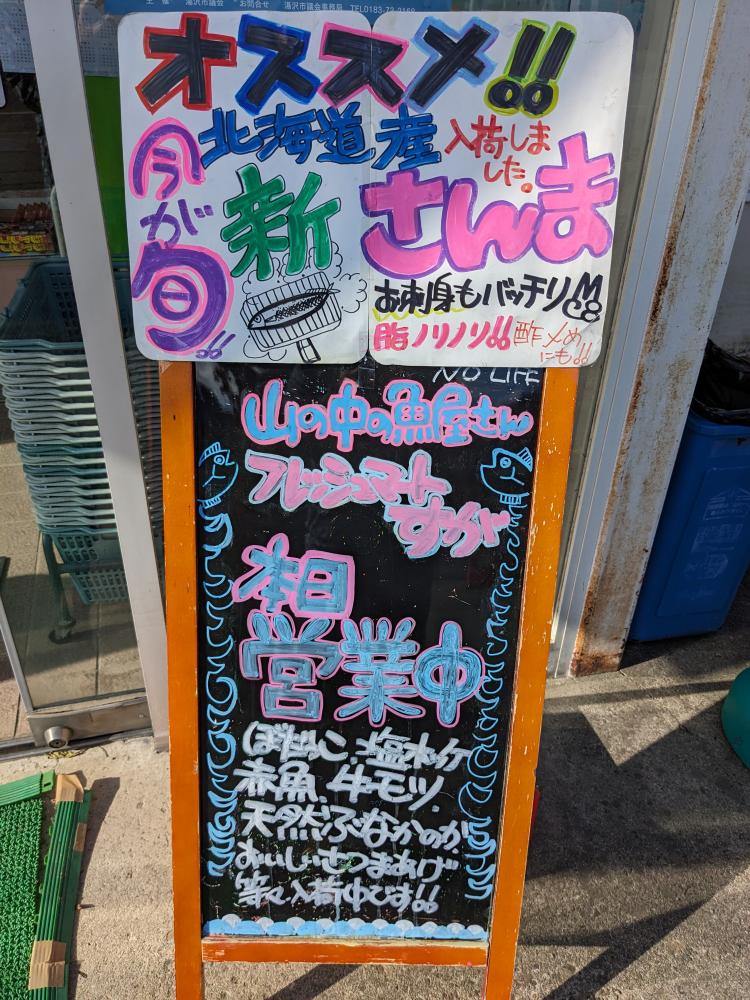 主催 湯沢市議会 お問合せ 湯沢市議会事務局 TEL0183-73-2168
オススメ!!
北海道産 入荷しました。
今が旬!!
新さんま
お刺身もバッチリ
脂ノリノリ!! 酢〆めにも!!
NO LIFE
山の中の魚屋さん
フレッシュマート
すが
本日
営業中
ぼだっこ、塩ホッケ
赤魚、牛モツ、
天然ぶなかのか、
おいしいさつまあげ
等々入荷中です!!